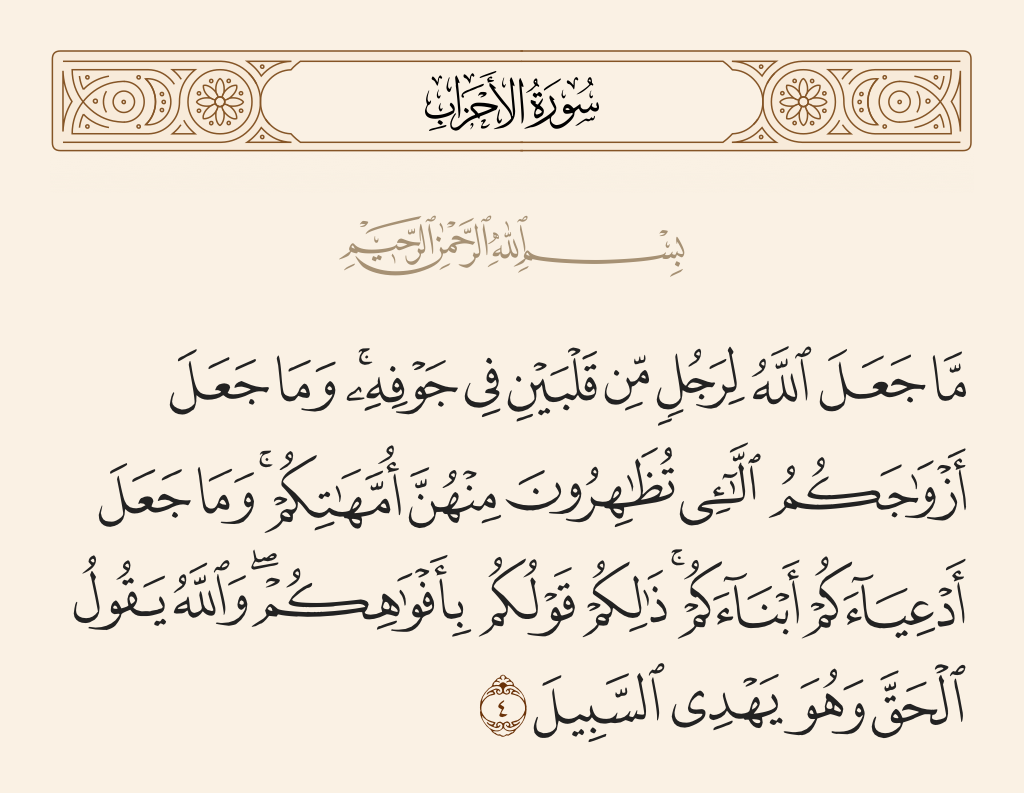 سُورَةُ الأَحْزَابِ
بِسْمِ ٱللَّهِ ٱلرَّحْمَٰنِ ٱلرَّحِيمِ
مَّا جَعَلَ ٱللَّهُ لِرَجُلٍ مِّن قَلْبَيْنِ فِى جَوْفِهِۦ ۚ وَمَا جَعَلَ
أَزْوَٰجَكُمُ ٱلَّـٰٓـِٔى تُظَـٰهِرُونَ مِنْهُنَّ أُمَّهَـٰتِكُمْ ۚ وَمَا جَعَلَ
أَدْعِيَآءَكُمْ أَبْنَآءَكُمْ ۚ ذَٰلِكُمْ قَوْلُكُم بِأَفْوَٰهِكُمْ ۖ وَٱللَّهُ يَقُولُ
ٱلْحَقَّ وَهُوَ يَهْدِى ٱلسَّبِيلَ ٤